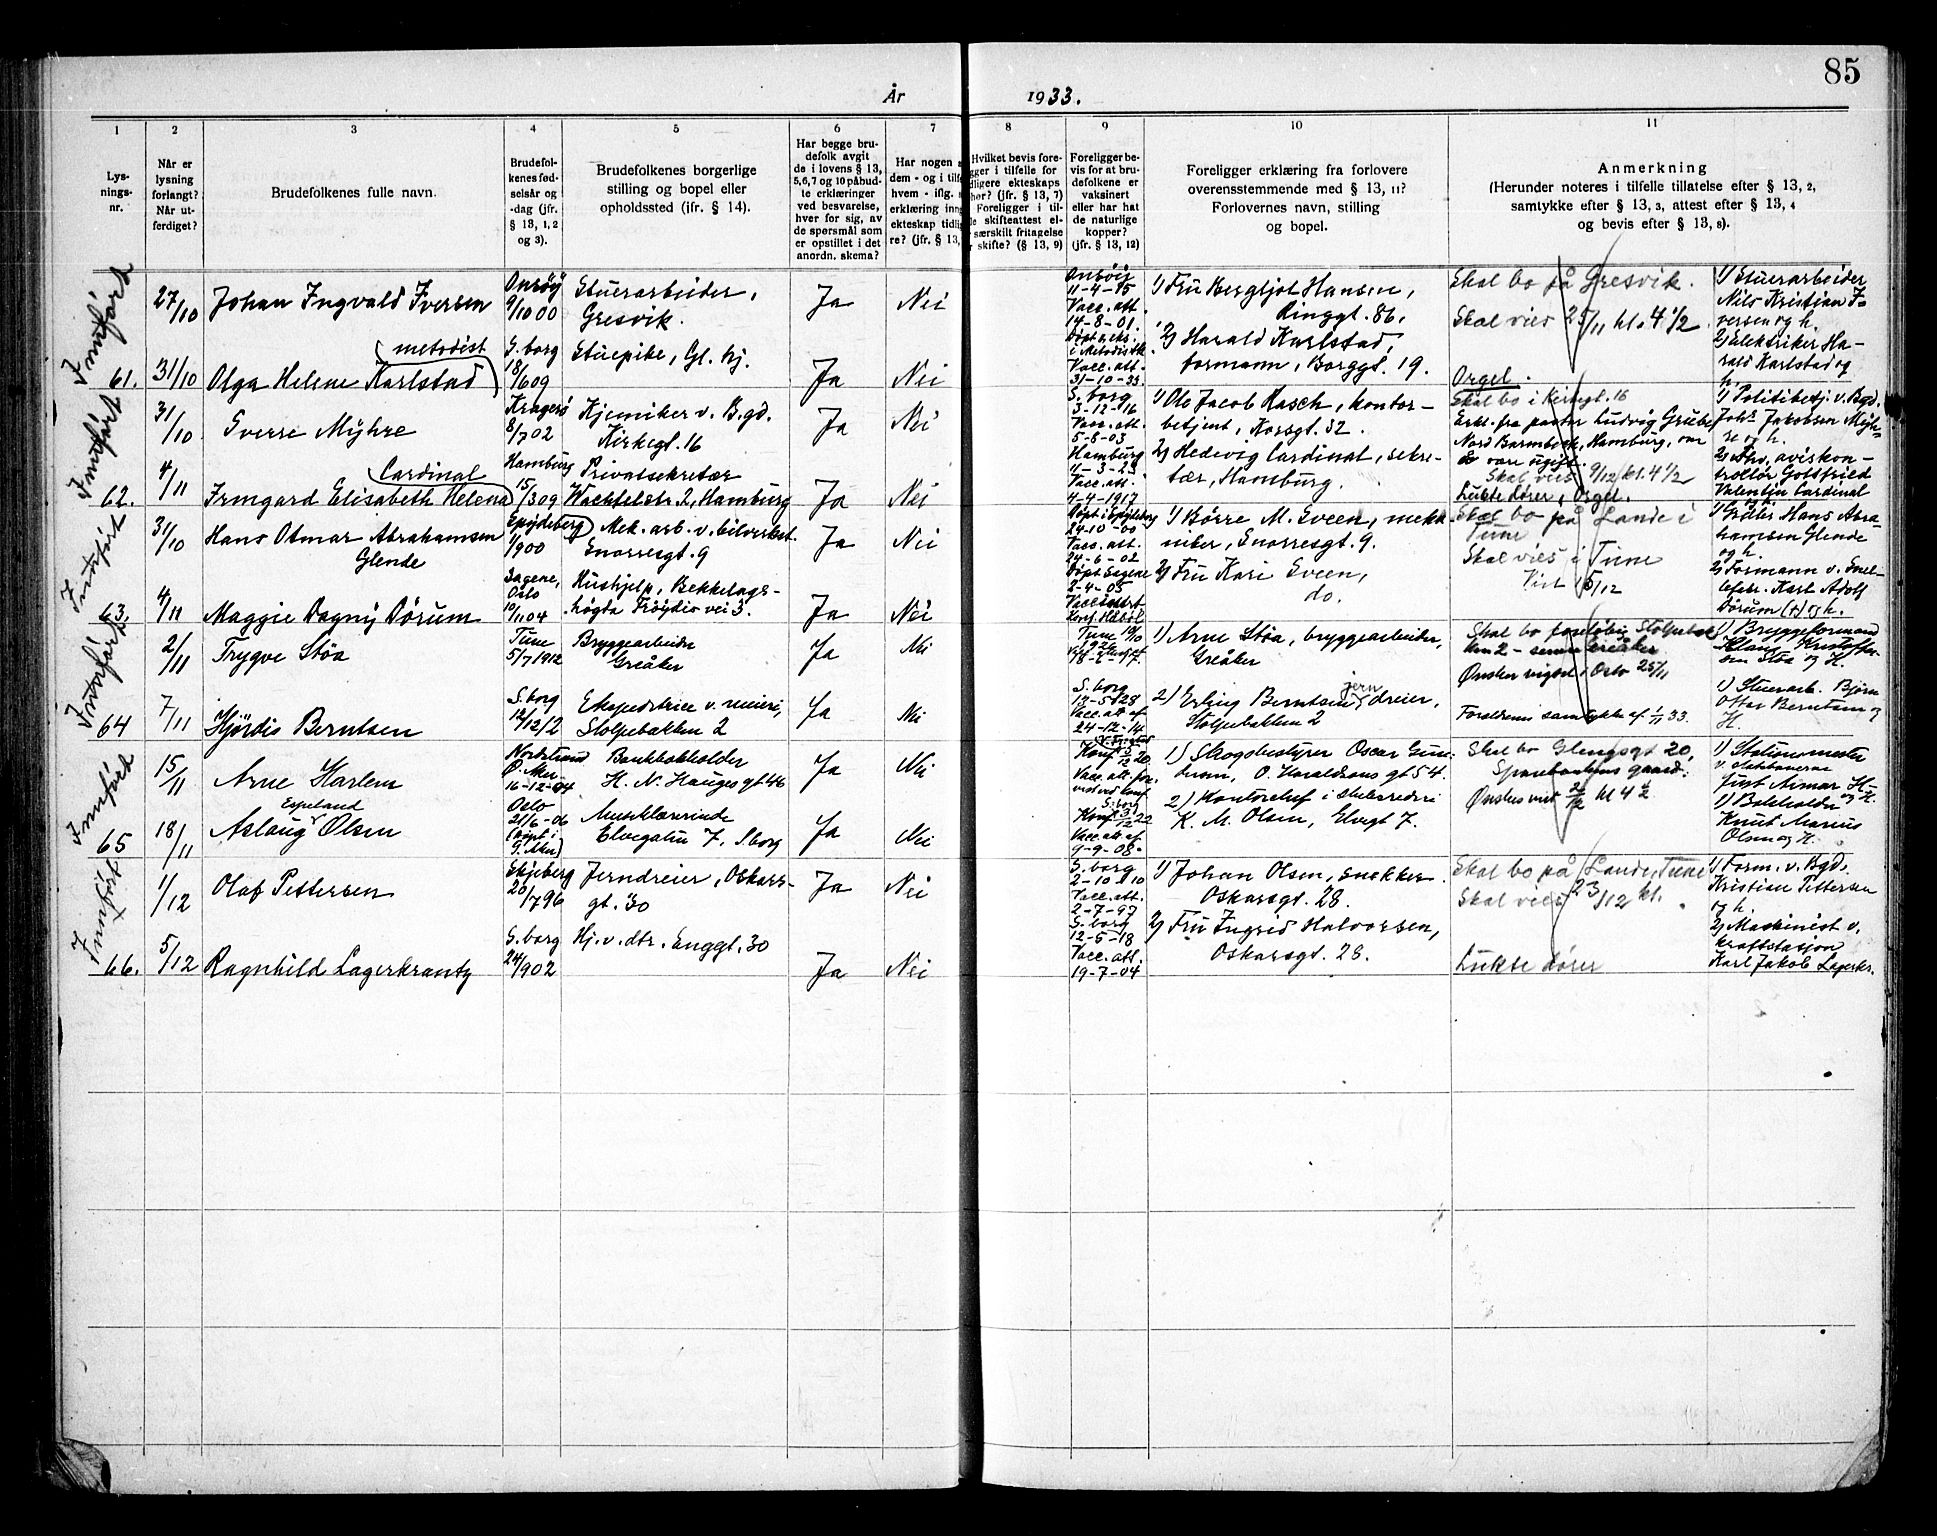 85
År 1933.
1 2 3 4 5 6 7 8 9 10 11
Lys-
nings-
nr.
Når er
lysning
forlangt?
Når ut-
ferdiget?
Brudefolkenes fulle navn.
Brudefol-
kenes fød-
selsår og
-dag (jfr.
§ 13, 1, 2
og 3).
Brudefolkenes borgerlige
stilling og bopel eller
opholdssted (jfr. § 14).
Har begge bru-
defolk avgit
de i lovens § 13,
5,6,7 og 10 påbud-
te erklæringer
ved besvarelse,
hver for sig, av
de spørsmål som
er opstillet i det
anordn. skema?
Har nogen a
dem - og i tilfe
hvem - iflg. s
erklæring inng
ekteskap tidlig
re? (jfr. § 13,
Hvilket bevis fore-
gger i tilfelle for
dligere ekteskaps
hør? (jfr. § 13, 7)
Foreligger i til-
le skifteattest el-
særskilt fritagelse
r skifte? (§ 13, 9)
Foreligger be-
vis for at bru-
defolkene er
vaksinert
eller har hat
de naturlige
kopper?
(jfr. § 13, 12)
Foreligger erklæring fra forlovere
overensstemmende med § 13, 11?
Forlovernes navn, stilling
og bopel.
Anmerkning
(Herunder noteres i tilfelle tillatelse efter § 13, 2,
samtykke efter § 13, 3, attest efter § 13, 4
og bevis efter § 13, 8).
Innført
61.
27/10
Johan Ingvald Iversen
Onsøy
9/10 00
Stuerarbeider,
Gresvik.
Ja
Nei
Onsøy
11-4-15
Vacc. att.
14-8-01.
1) Fru Bergljot Hansen,
Ringgt. 86.
Skal bo på Gresvik.
Skal vies 25/11 kl. 4 1/2
1) Stuerarbeider
Nils Kristian I-
versen og h.
31/10
(metodist
Olga Helene Karlstad)
S.borg
18/6 09
Stuepike, Gl. hj.
Ja
Nei
i Metodistk.
Vacc. att.
31-10-33.
2) Harald Karlstad,
formann, Borggt. 19.
Orgel.
2) Elektriker Ha-
rald Karlstad og
h.
Innført
62.
31/10
Sverre Myhre
Kragerø
8/7 02
Kjemiker v. B.gd.
Kirkegt. 16
Ja
Nei
S. borg
3-12-16
Vacc. att.
5-8-03
1) Ole Jacob Rasch, kontor-
betjent, Korsgt. 32.
Skal bo i Kirkegt. 16
Erkl. fra pastor Ludvig Griebe
Nord Barmbeck, Hamburg, om
å være ugift.
1) Politibetj. v. Bgd.
Johs Jakobsen Myh-
re og h.
4/11
(Cardinal
Irmgard Elisabeth Helena)
Hamburg
15/3 09
Privatsekretær
Wachtelstr. 2, Hamburg
Ja
Nei
Hamburg
11-3-23
Vacc. att.
4-4-1917
2) Hedevig Cardinal, sekre-
tær, Hamburg.
Skal vies 9/12 kl. 4 1/2
Lukte dører, Orgel.
2) Avd. aviskon-
trollør Gottfried
Valentin Cardinal
Innført
63.
31/10
Hans Otmar Abrahamsen
Glende
Spydeberg
1/9 00
Mek. arb. v. bilverkst.
Snorresgt. 9
Ja
Nei
Døpt i Spydeberg
24-10-00
Vacc. att.
24-6-02
1) Børre M. Sveen, mekk
niker, Snorresgt. 9.
Skal bo på Lande i
Tune
Skal vies i Tune
Viet 16/12
1) Grd.br. Hans Abra-
hamsen Glende
og h.
4/11
Maggie Dagny Dørum
Sagene,
Oslo
10/11 04
Hushjelp, Bekkelags-
høgta Frøydis vei 3.
Ja
Nei
Døpt Sagene
2-4-05
Vacc. attest
Konf. Hobøl
2) Fru Kari Sveen,
do.
2) Formann v. Smel-
tefabr. Karl Adolf
Dørum (+) og h.
Innført
64
2/11
Trygve Støa
Tune
5/7 1912
Bryggearbeider
Greåker
Ja
Nei
Tune
1926
18-6-17.
1) Arne Støa, bryggearbeider,
Greåker
Skal bo foreløbig Stolpebak
ken 2 - senere Greåker
Ønsker vigsel i Oslo 25/11
1) Bryggeformand
Klaus Kristoffer-
sen Støa og H.
7/11
Hjørdis Berntsen
S.borg
12/12 12
Ekspeditrice v. meieri,
Stolpebakken 2
Ja
Nei
S. borg
17-5-28
Vacc. att af
24-12-14
2) Erling Berntsen, jern dreier,
Stolpebakken 2
Foreldrenes samtykke af 1/11 33.
1) Stuerarb. Bjørn
Ottar Berntsen og
H.
Innført
65
15/11
Arne Harlem
Nordstrand
Ø. Aker
16-12-04
Bankbokholder
H. N. Hauges gt 46
Ja
Nei
Vacc. att. for.
vist ved konf.
1) Skogbestyrer Oscar Gun-
dersen, O. Haraldsøns gt 54.
Skal bo Glengsgt 20,
Sparebankens gaard.
Ønskes viet kl 4 1/2
1) Stationsmester
v. Statsbanerne
Just Aimar H.
og H.
18/11
Espeland
Aslaug Olsen
Oslo
21/6-06
(døpt i
G. Aker)
Musiklærerinde
Elvegaten 7, S.borg
Ja
Nei
S. borg
Vacc. att. af
9-9-08.
2) Kontorchef i skibsrederi
K. M. Olsen, Elvegt 7.
1) Bokholder
Knut Marius
Olsen og H.
Innført
66.
1/12
Olaf Pettersen
Skjeberg
20/7 96
Jerndreier, Oskars-
gt. 30
Ja
Nei
S. borg
2-10-10
Vacc. att.
2-7-97
1) Johan Olsen, snekker
Oskarsgt. 28.
Skal bo på Lande, Tune
Skal vies 23/12 kl.
1) Form. v. Bgd.
Kristian Pettersen
og h.
5/12
Ragnhild Lagerkrantz
S. borg
24/9 02
Hj. v. dtr. Enggt. 30
Ja
Nei
S. borg
12-5-18
Vacc. att.
19-7-04
2) Fru Ingrid Halvorsen,
Oskarsgt. 28.
Lukte dører
2) Maskinist v.
kraftstasjon
Karl Jakob Lagerkr.